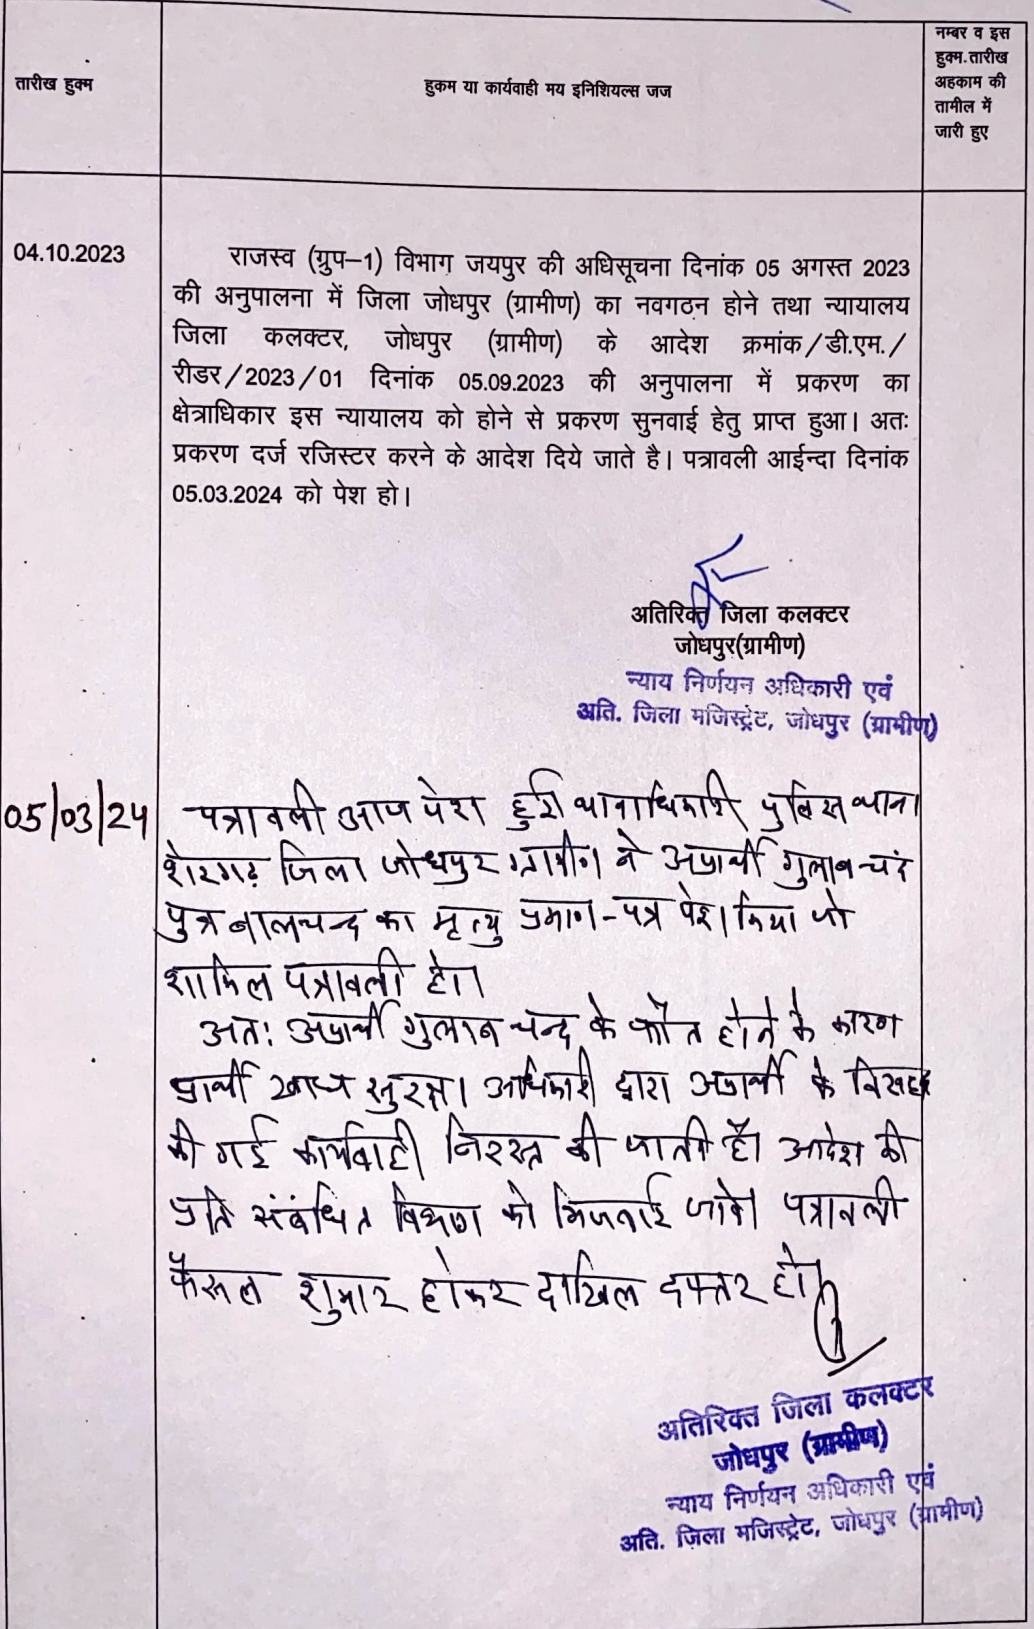 तारीख हुक्म
हुकम या कार्यवाही मय इनिशियल्स जज
नम्बर व इस
हुक्म.तारीख
अहकाम की
तामील में
जारी हुए
04.10.2023
राजस्व (ग्रुप–1) विभाग जयपुर की अधिसूचना दिनांक 05 अगस्त 2023
की अनुपालना में जिला जोधपुर (ग्रामीण) का नवगठन होने तथा न्यायालय
जिला कलक्टर, जोधपुर (ग्रामीण) के आदेश क्रमांक/डी.एम./
रीडर/2023/01 दिनांक 05.09.2023 की अनुपालना में प्रकरण का
क्षेत्राधिकार इस न्यायालय को होने से प्रकरण सुनवाई हेतु प्राप्त हुआ। अतः
प्रकरण दर्ज रजिस्टर करने के आदेश दिये जाते है। पत्रावली आईन्दा दिनांक
05.03.2024 को पेश हो।
अतिरिक्त जिला कलक्टर
जोधपुर(ग्रामीण)
न्याय निर्णयन अधिकारी एवं
अति. जिला मजिस्ट्रेट, जोधपुर (ग्रामीण)
05/03/24
पत्रावली आज पेश हुई थानाधिकारी पुलिस थाना
शेरगढ़ जिला जोधपुर ग्रामीण ने अप्रार्थी गुलाब चंद
पुत्र बालचन्द का मृत्यु प्रमाण-पत्र पेश किया जो
शामिल पत्रावली हो।
अतः अप्रार्थी गुलाब चन्द के फौत होने के कारण
प्रार्थी खाद्य सुरक्षा अधिकारी द्वारा अप्रार्थी के विरूद्ध
की गई कार्यवाही निरस्त की जाती है। आदेश की
प्रति संबंधित विभाग को भिजवाई जावे। पत्रावली
फैसल शुमार होकर दाखिल दफ्तर हो।
अतिरिक्त जिला कलक्टर
जोधपुर (ग्रामीण)
न्याय निर्णयन अधिकारी एवं
अति. जिला मजिस्ट्रेट, जोधपुर (ग्रामीण)